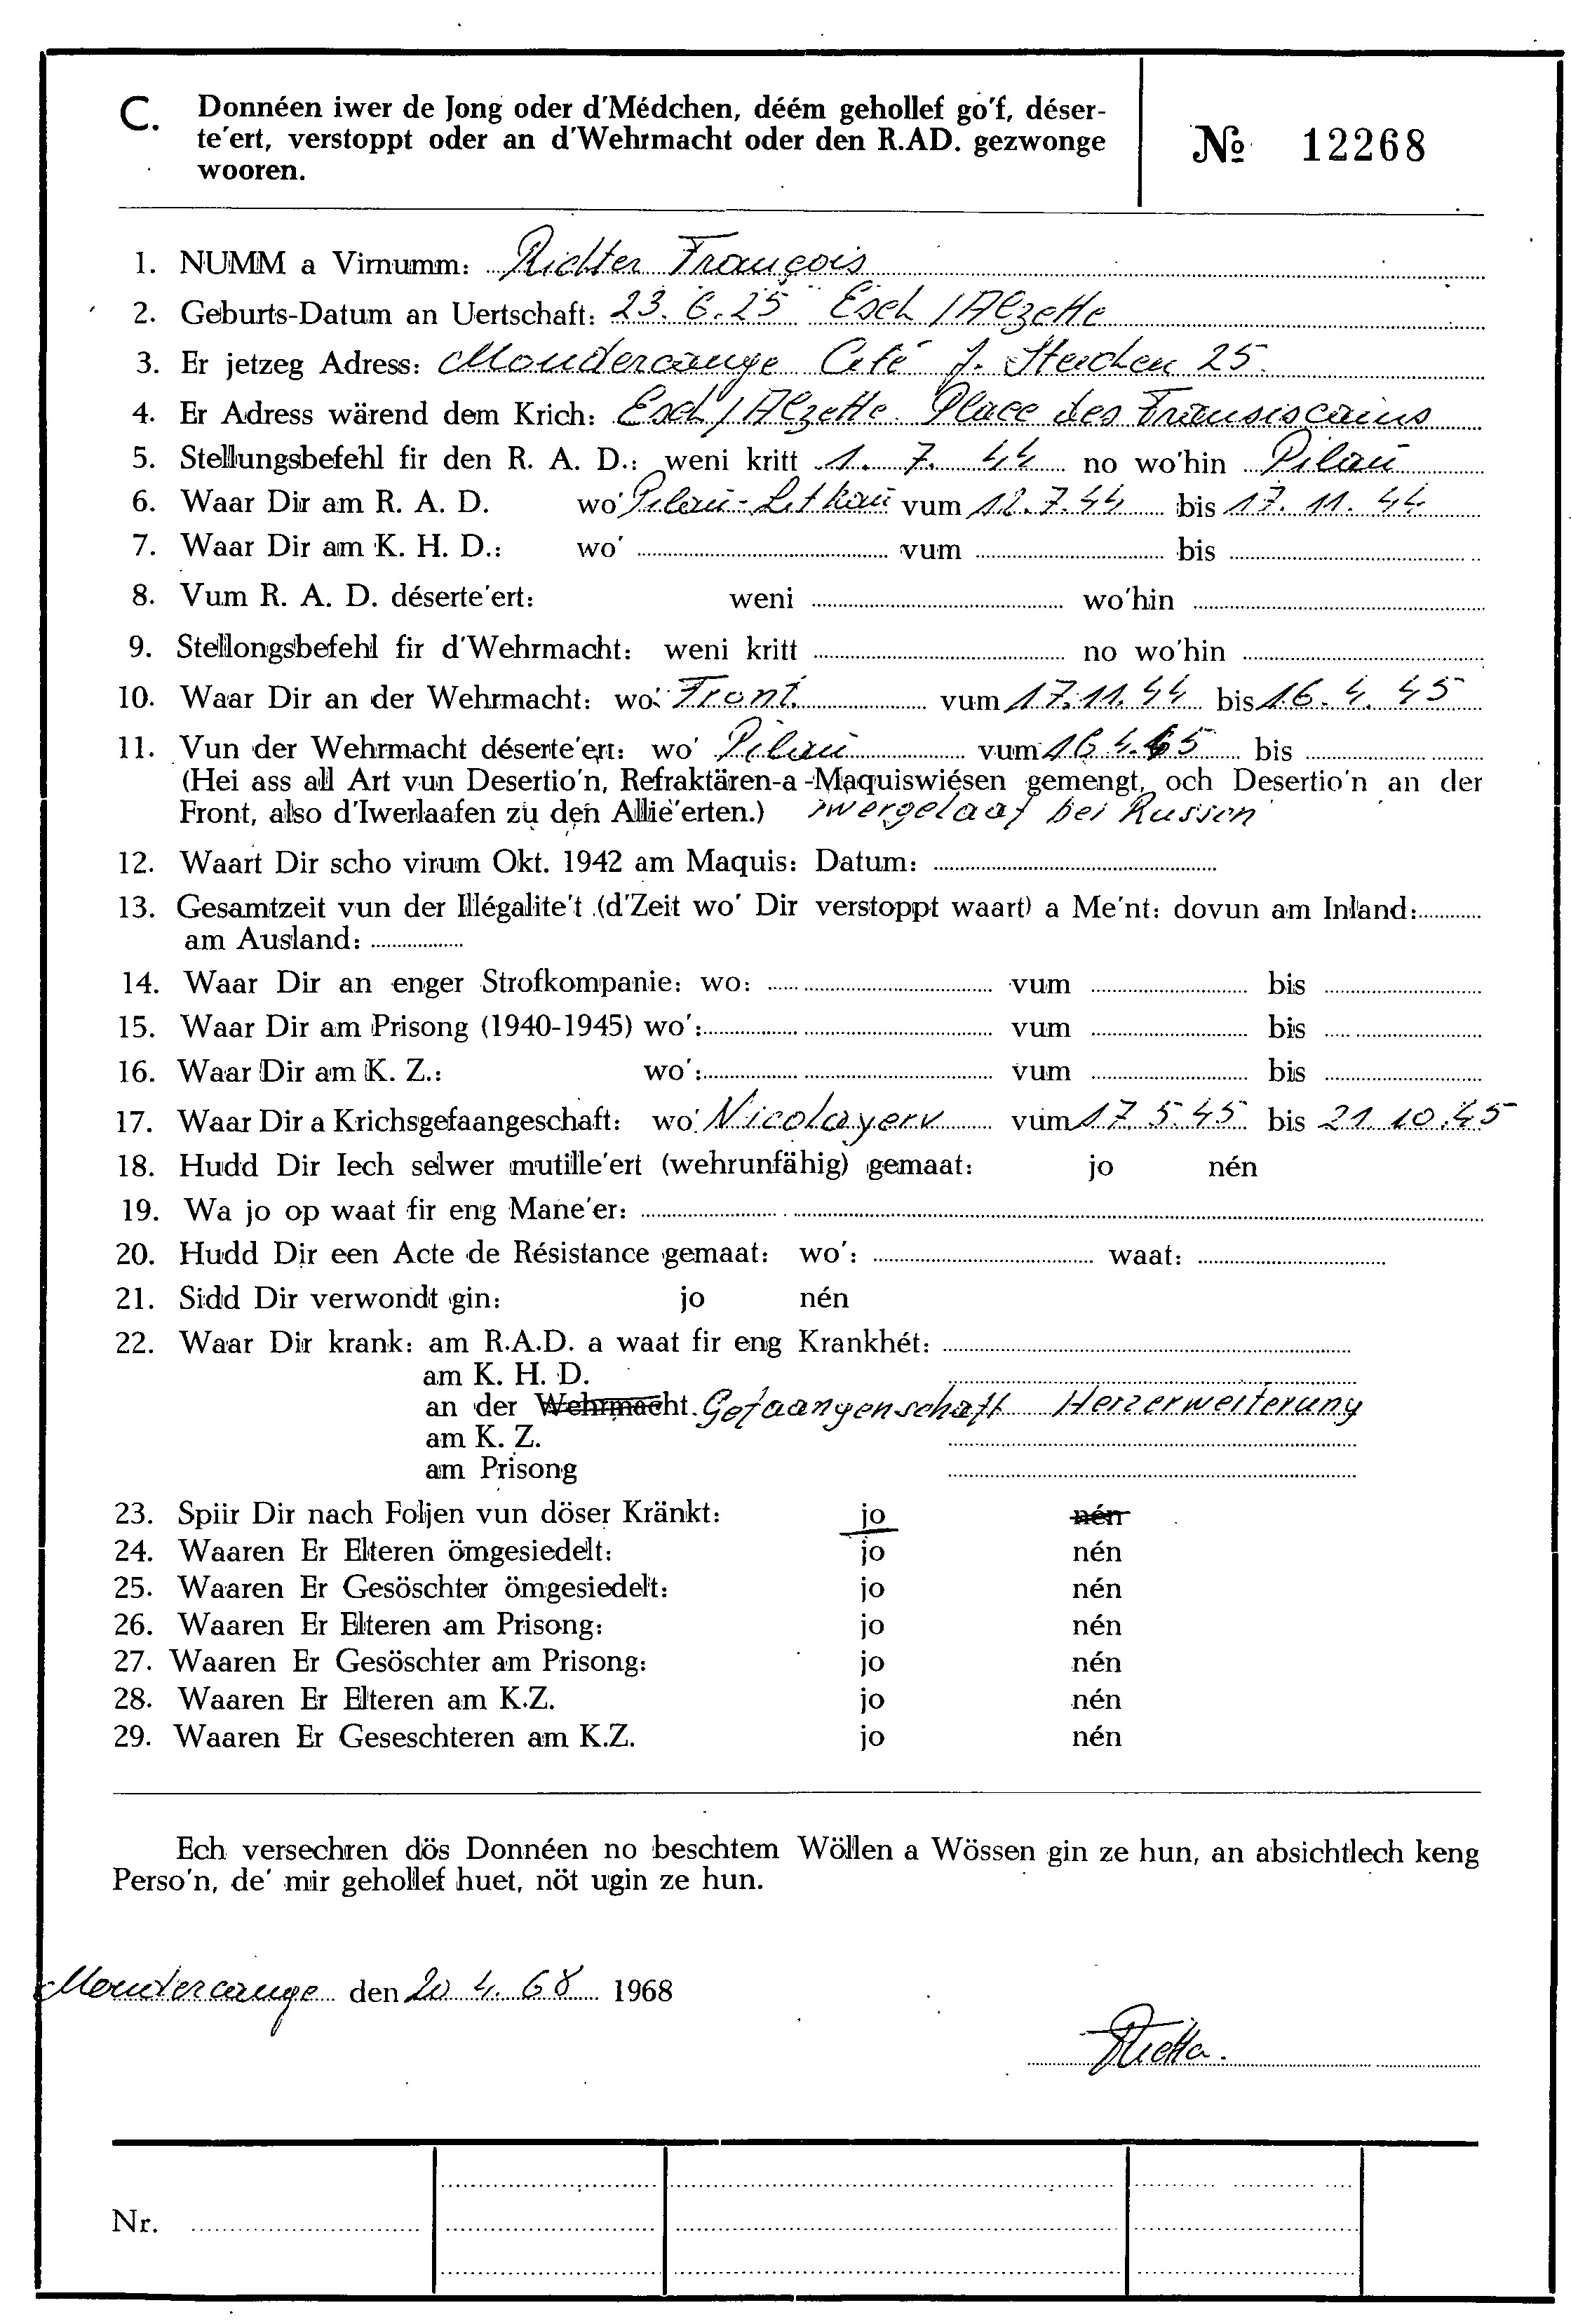 C. Donnéen iwer de Jong oder d'Médchen, déém gehollef go'f, déser-
te'ert, verstoppt oder an d'Wehrmacht oder den R.AD. gezwonge
wooren.
№ 12268
1. NUMM a Virnumm: Richter François
2. Geburts-Datum an Uertschaft: 23.6.25 Esch/Alzette
3. Er jetzeg Adress: Mondercange Cité J. Steichen 25
4. Er Adress wärend dem Krich: Esch/Alzette Place des Fransiscains
5. Stellungsbefehl fir den R. A. D.: weni kritt 1. 7. 44 no wo'hin Pilau
6. Waar Dir am R. A. D. wo' Pilau-Litkau vum 12.7.44 bis 17. 11. 44
7. Waar Dir am K. H. D.: wo' vum bis
8. Vum R. A. D. déserte'ert: weni wo'hin
9. Stellongsbefehl fir d'Wehrmacht: weni kritt no wo'hin
10. Waar Dir an der Wehrmacht: wo: Front. vum 17.11.44 bis 16. 4. 45
11. Vun der Wehrmacht déserte'ert: wo' Pilau vum 16.4.45 bis
(Hei ass all Art vun Desertio'n, Refraktären-a -Maquiswiésen gemengt, och Desertio'n an der
Front, also d'Iwerlaafen zu den Allié'erten.) iwergelaaf bei Russen
12. Waart Dir scho virum Okt. 1942 am Maquis: Datum:
13. Gesamtzeit vun der Illégalite't (d'Zeit wo' Dir verstoppt waart) a Me'nt: dovun am Inland:
am Ausland:
14. Waar Dir an enger Strofkompanie: wo: vum bis
15. Waar Dir am Prisong (1940-1945) wo': vum bis
16. Waar Dir am K. Z.: wo': vum bis
17. Waar Dir a Krichsgefaangeschaft: wo: Nicolayerv vum 17.5.45 bis 21.10.45
18. Hudd Dir Iech selwer mutille'ert (wehrunfähig) gemaat: jo nén
19. Wa jo op waat fir eng Mane'er:
20. Hudd Dir een Acte de Résistance gemaat: wo': waat:
21. Sidd Dir verwondt gin: jo nén
22. Waar Dir krank: am R.A.D. a waat fir eng Krankhét:
am K. H. D.
an der Wehrmacht. Gefaangenschaft Herzerweiterung
am K. Z.
am Prisong
23. Spiir Dir nach Foljen vun döser Kränkt: jo nén
24. Waaren Er Elteren ömgesiedelt: jo nén
25. Waaren Er Gesöschter ömgesiedelt: jo nén
26. Waaren Er Elteren am Prisong: jo nén
27. Waaren Er Gesöschter am Prisong: jo nén
28. Waaren Er Elteren am K.Z. jo nén
29. Waaren Er Geseschteren am K.Z. jo nén
Ech versechren dös Donnéen no beschtem Wöllen a Wössen gin ze hun, an absichtlech keng
Perso'n, de' mir gehollef huet, nöt ugin ze hun.
Mondercange den 20 4. 68 1968
Nr.